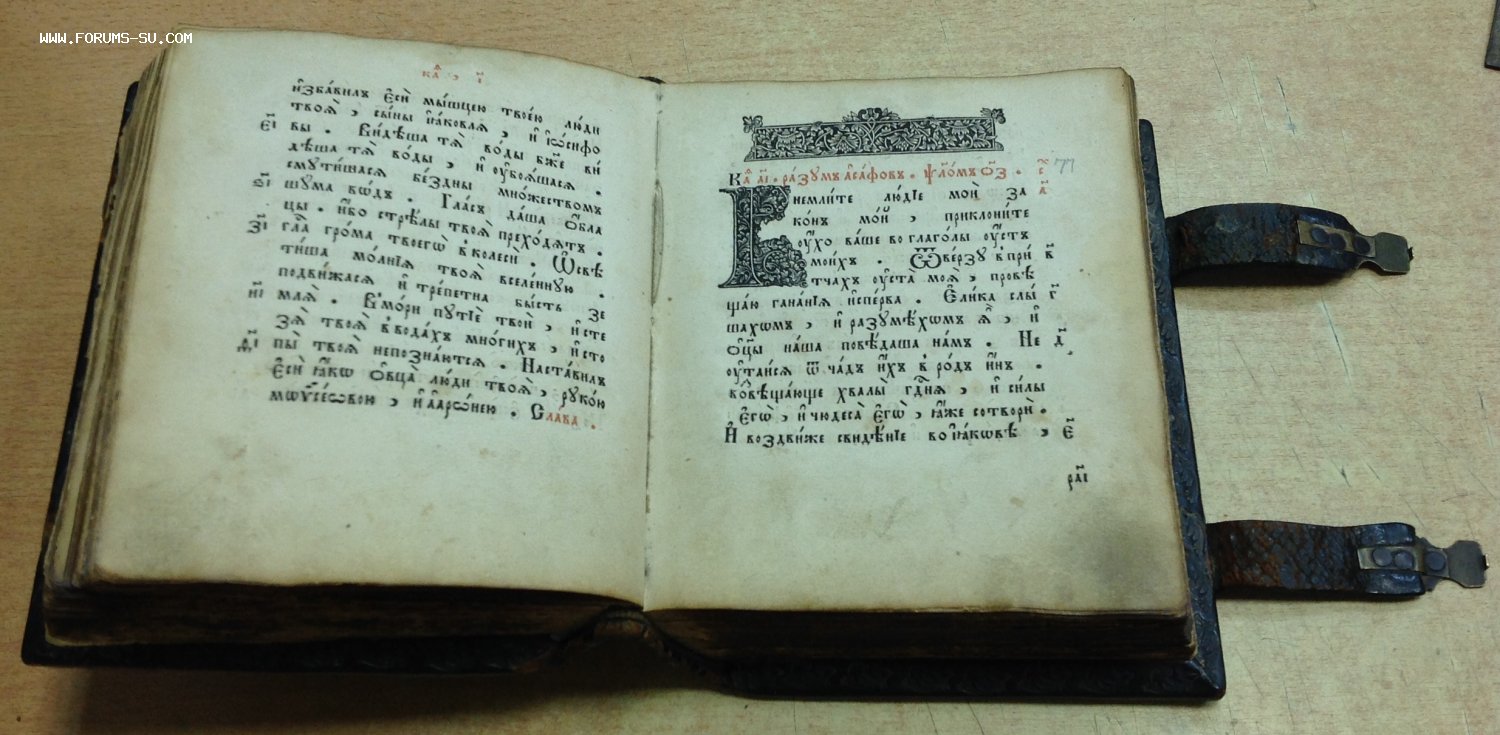 www.forums-su.com
ка҃ , і҃
и҆зба́вилъ є҆сѝ мы́шцею твое́ю лю́ди
твоѧ̀ , сы́ны і҆а́ковлѧ , и҆ і҆ѡ́сифо
є҃і вы . Ви́дѣша тѧ̀ во́ды бж҃е ви́
дѣша тѧ̀ во́ды , и҆ ᲂу҆боѧ́шасѧ .
смути́шасѧ бе́здны мно́жествомъ
ѕ҃і шума во́дъ . Гла́съ да́ша ѻ҆́бла
цы . и҆́бо стрѣ́лы твоѧ̀ прехо́дѧтъ .
з҃і гла́ гро́ма твоегѡ̀ в колесѝ . Ѡ҆свѣ
ти́ша мо́лнїѧ твоѧ̀ вселе́нную .
подви́жасѧ и҆ тре́петна бы́сть зе
и҃і млѧ̀ . В мо́ри путїѐ твоѝ , и҆ сте
зѧ̀ твоѧ̀ в вода́хъ мно́гихъ , и҆ сто
д҃і пы̀ твоѧ̀ непозна́ютсѧ . Наста́вилъ
є҆сѝ ꙗ҆́кѡ ѻ҆́вца лю́ди твоѧ̀ , руко́ю
мѡѷсе́ѡвою , и҆ а҆арѡ́нею . Сла́ва .
Каѳ҃ а҃і . ра́зумъ а҆са́фовъ . ѱало́мъ о҃з . с҃
77
Внемли́те лю́дїе моѝ за а҃
ко́нъ мо́й , приклони́те
ᲂу҆́хо ва́ше во глаго́лы ᲂу҆́стъ
мои́хъ . Ѿве́рзу в при́ в҃
тчахъ ᲂу҆ста̀ моѧ̀ , провѣ
ща́ю гана́нїѧ и҆спе́рва . Є҆ли́ка слы́ г҃
шахомъ , и҆ разумѣ́хомъ ѧ҆̀ , и҆
ѻ҆тцы̀ на́ша повѣ́даша на́мъ . Не д҃
ᲂу҆таи́сѧ ѿ ча́дъ и҆́хъ в ро́дъ и҆́нъ .
возвѣща́юще хвалы̀ гд҇нѧ , и҆ си́лы
є҆гѡ̀ , и҆ чюдеса̀ є҆гѡ̀ , ꙗ҆̀же сотворѝ .
И҆ воздви́же свидѣ́нїе во і҆а́ковѣ , є҃
ра҃і